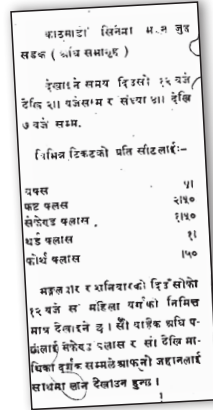 काठमाडौं सिनेमा भवन जुद्ध
सडक ( अघि सभागृह )
देखाइने समय दिउसो १२ बजे
देखि २॥ बजेसम्म र संध्या ४॥ देखि
७ बजे सम्म.
विभिन्न टिकटको प्रति सीटलाई:-
बक्स ५।
फष्ट क्लास २।५०
सेकेण्ड क्लास १।५०
थर्ड क्लास १।
फोर्थ क्लास ।५०
मङ्गलबार र शनिबारको दिउँसोको
१२ बजे महिला वर्गको निमित्त
मात्र देखाइने छ । सो बाहेक अघि
सेकेण्ड क्लास र सो देखि मा-
थिका दर्शक सम्मले आफ्नो जहानलाई
साथमा लान देखाउन हुन्छ ।